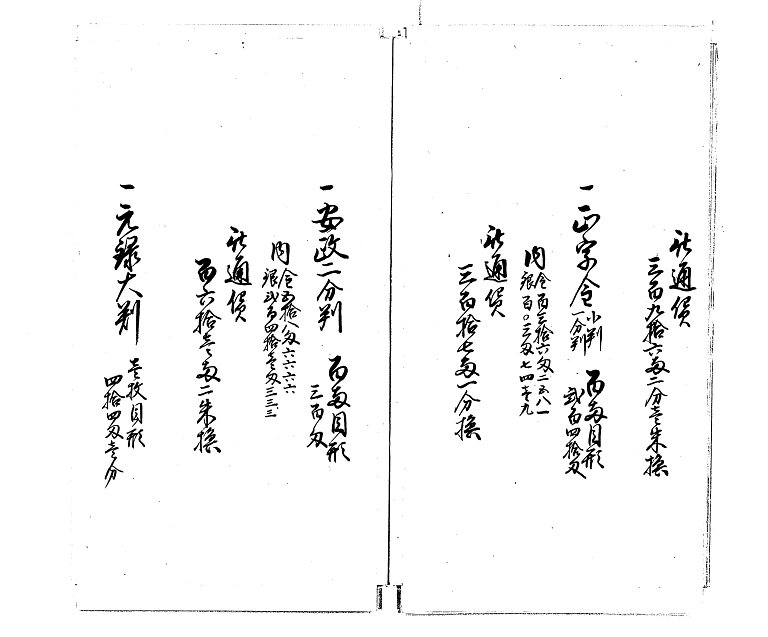 此通貨
三百九拾六両二分壱朱換
一 正字金 小判 一分判 百両目形
弐百四拾匁
内 金百三拾六匁二五八一
銀百〇三匁七四壱九
此通貨
三百拾七両一分換
一 安政二分判 百両目形
三百匁
内 金五拾八匁六六六六
銀弐百四拾壱匁三三三
此通貨
百六拾壱両二朱換
一 元録大判 壱枚目形
四拾四匁壱分